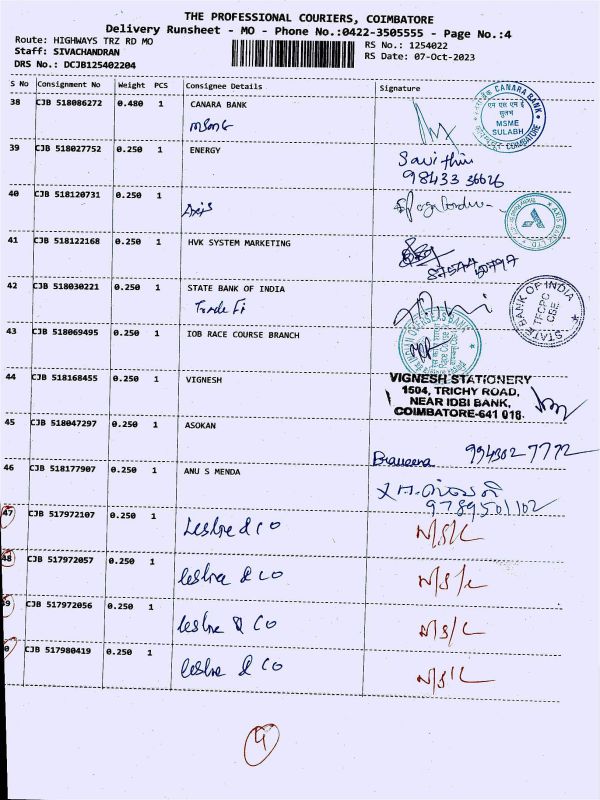 THE PROFESSIONAL COURIERS, COIMBATORE
Delivery Runsheet - MO - Phone No.:0422-3505555 - Page No.:4
Route: HIGHWAYS TRZ RD MO
RS No.: 1254022
Staff: SIVACHANDRAN
RS Date: 07-Oct-2023
DRS No.: DCJB125402204
S No Consignment No Weight PCS Consignee Details Signature
38 CJB 518086272 0.480 1 CANARA BANK
CANARA BANK
एम एस एम ई
सुलभ
MSME
SULABH
COIMBATORE
39 CJB 518027752 0.250 1 ENERGY
98433 36626
40 CJB 518120731 0.250 1
Axis
AXIS BANK LTD
41 CJB 518122168 0.250 1 HVK SYSTEM MARKETING
42 CJB 518030221 0.250 1 STATE BANK OF INDIA
STATE BANK OF INDIA
TFCPC
CBE
43 CJB 518069495 0.250 1 IOB RACE COURSE BRANCH
44 CJB 518168455 0.250 1 VIGNESH
VIGNESH STATIONERY
1504, TRICHY ROAD,
NEAR IDBI BANK,
COIMBATORE-641 018.
45 CJB 518047297 0.250 1 ASOKAN
Praveena 9943027772
46 CJB 518177907 0.250 1 ANU S MENDA
9789501102
47 CJB 517972107 0.250 1 Leslie & co N/S/L
48 CJB 517972057 0.250 1 Leslie & co N/S/L
49 CJB 517972056 0.250 1 Leslie & co N/S/L
0 CJB 517980419 0.250 1 Leslie & co N/S/L
4